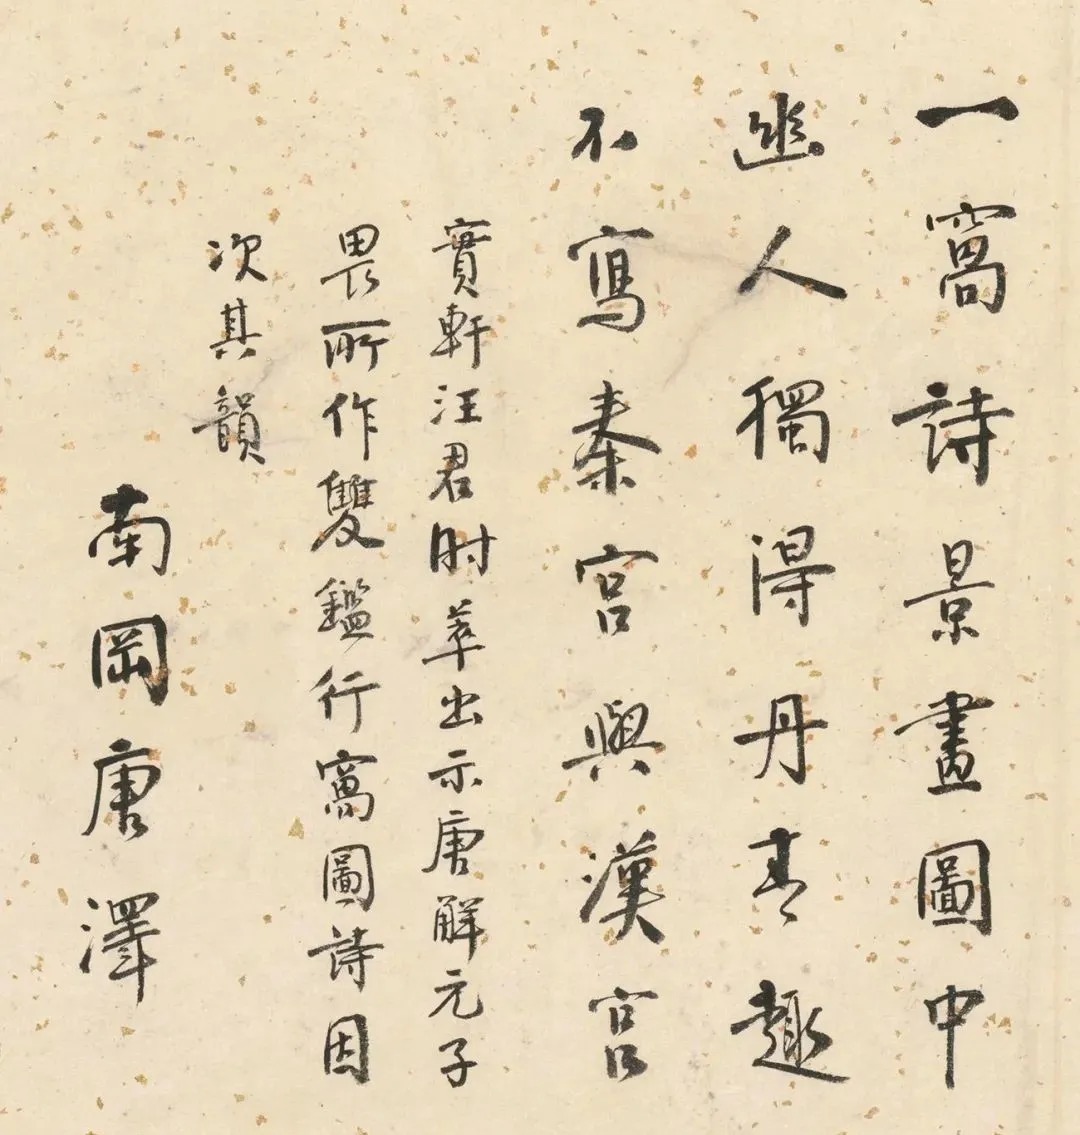 一窩詩景畫圖中
幽人獨得丹青趣
不寫秦宮與漢宮
實軒汪君时萃出示唐解元子
畏所作雙鑑行窩圖詩因
次其韻
南岡唐澤